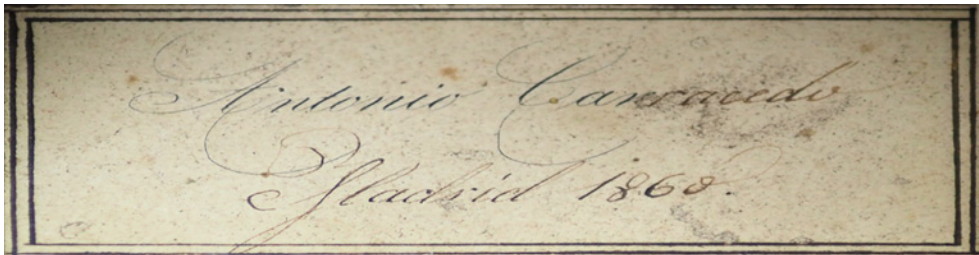 Antonio Carracedo
Madrid 1860.